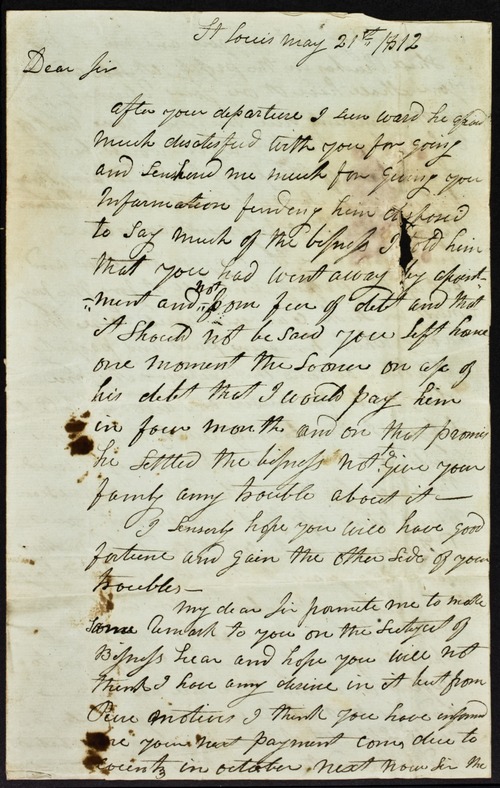 St Louis may 21st 1812
Dear Sir
after your departure I seen ward he
much disatisfud with you for going
and senshend me much for giving you
Information finding him disposed
to say much of the bisness I told him
that you had went away by apoint-
ment and not from feer of debt and that
it should not be said you left home
one moment the sooner on of
his debt that I would pay him
in four month and on that promis
he settled the bisness not to give your
family amy trouble about it —
I senserly hope you will have good
fortune and gain the other side of your
troubles —
My dear Sir pormite me to make
some remark to you on the Subject of
Bisness hear and hope you will not
think I have amy desire in it but from
Pure motives I think you have
me your next payment coms due to
in october next now Sir the